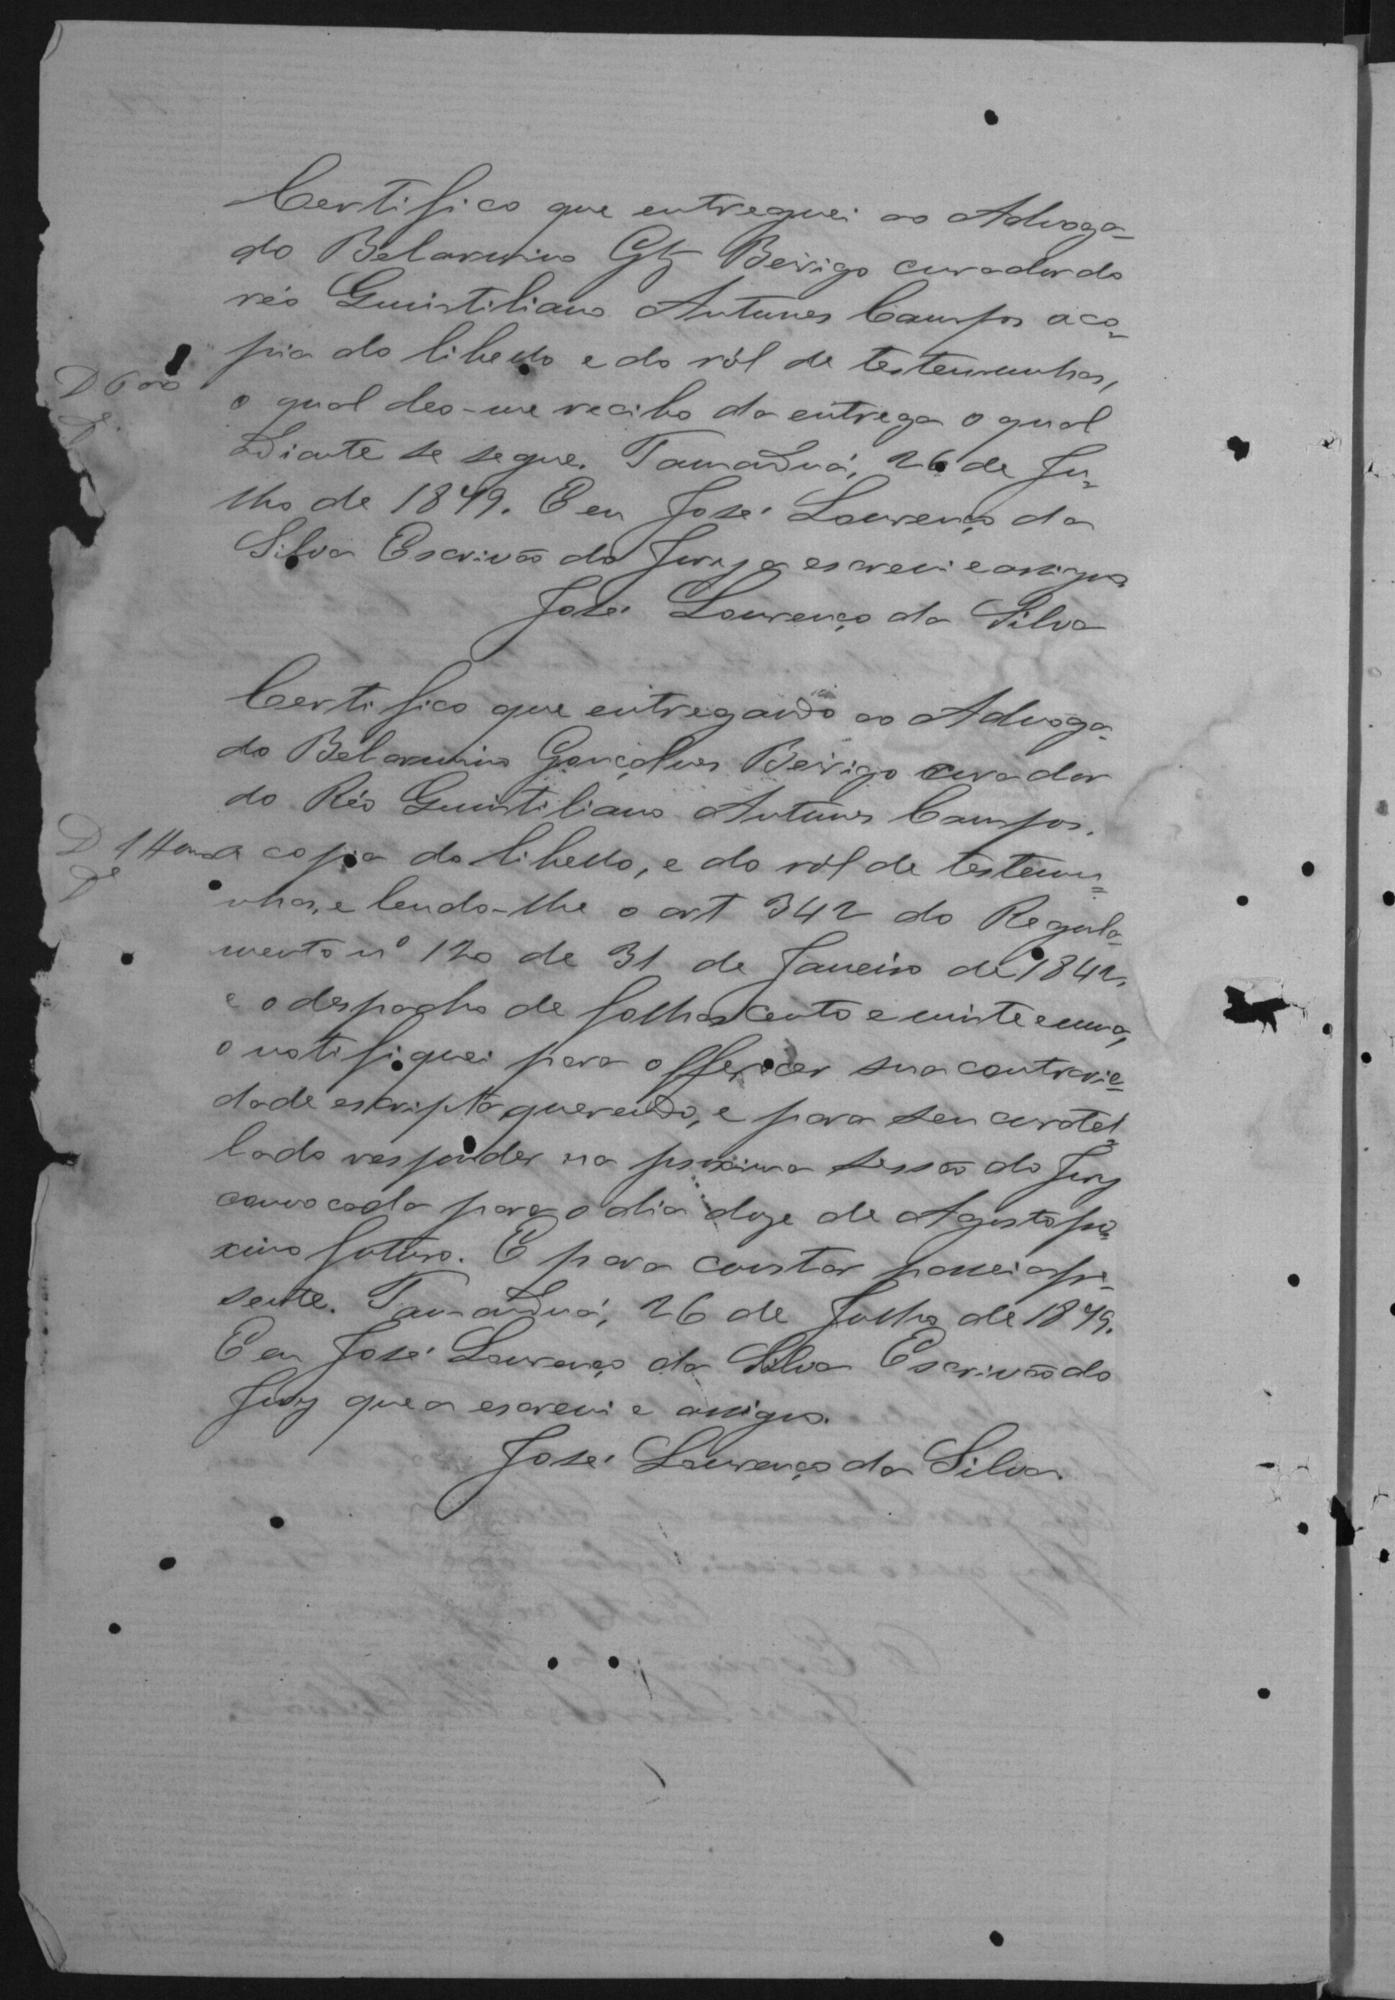 Certifico que entreguei ao Advoga-
do Belarmino Glz Beirigo curador do
réo Guintiliano Antunes Campos a co-
pia do libello e do ról de testemunhas,
D 600
o qual deo-me recibo da entrega o qual
Diante se segue. Tamanduá, 26 de Ju-
lho de 1879. E eu José Lourenço da
Silva Escrivão do Jury a escrevi e assigno
José Lourenço da Silva
Certifico que entregando ao Advoga-
do Belarmino Gonçalves Beirigo curador
do Réo Guintiliano Antunes Campos.
a copia do libello, e do ról de testemu-
nhas, e lendo-lhe o art 342 do Regula-
mento nº 120 de 31 de Janeiro de 1842,
e o despacho de folhas cento e vinte e uma,
o notifiquei para offerecer sua contrarie-
dade escripta querendo, e para seu curatel-
lado responder na proxima sessão do Jury
convocada para o dia doze de Agosto pro-
ximo futuro. E para constar passei a pre-
sente. Tamanduá, 26 de Julho de 1879.
E eu José Lourenço da Silva Escrivão do
Jury que a escrevi e assigno.
José Lourenço da Silva